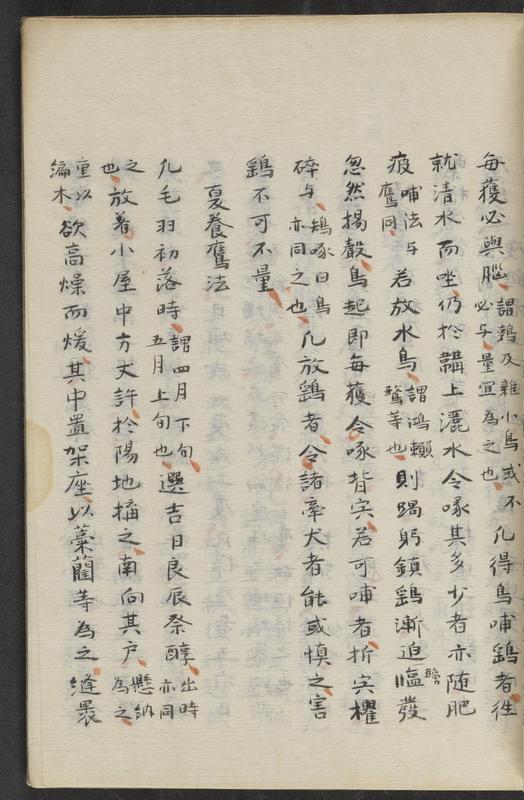 每獲必與腦謂鶉及雜小鳥或不必与量宜為之也凡得鳥哺鷂者往
就清水而坐仍於韝上灑水令啄其多少者亦随肥
疲哺法与鷹同若放水鳥謂鴻等也則跼躬鎮鷂漸迫臨發
忽然揚聲鳥起即每獲令啄背宍若可哺者折宍櫂
碎与雉啄日鳥亦同之也凡放鷂者令諸牽犬者能或慎之害
鷂不可不量
夏養鷹法
凡毛羽初落時謂四月下旬五月上旬也選吉日良辰祭醇出時亦同
之也放着小屋中方丈許於陽地搆之南向其戸懸納為之
重以編木欲高燥而煖其中置架座以藁藺等為之縫暴